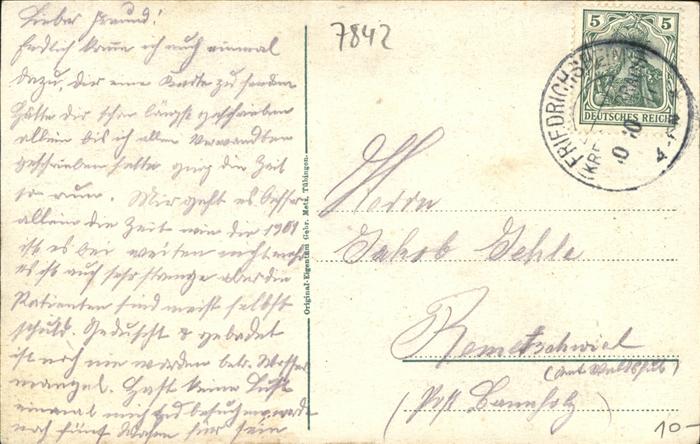 Lieber Freund!
Endlich komme ich auch einmal
dazu, dir eine Karte zu senden
Hätte dir schon längst geschrieben
allein bis ich allen Verwandten
geschrieben hatte ging die Zeit
so rum. Mir geht es besser
allein die Zeit wie die 1908
ist es bei weiten nicht mehr
es ist auch sehr strenge aber die
Patienten sind meist selbst
schuld. Geduscht & gebadet
ist noch nie worden betr. Wasser
mangel. Hast keine Lust
einmal mich zu besuchen, werde
noch fünf Wochen hier sein
Original-Eigentum Gebr. Metz, Tübingen.
7842
5 5
DEUTSCHES REICH
FRIEDRICHSHEIM
10 10
4-5N
Herrn
Jakob Gehle
Remetschwiel
(Amt Waldshut)
(Post Bannholz)
10-